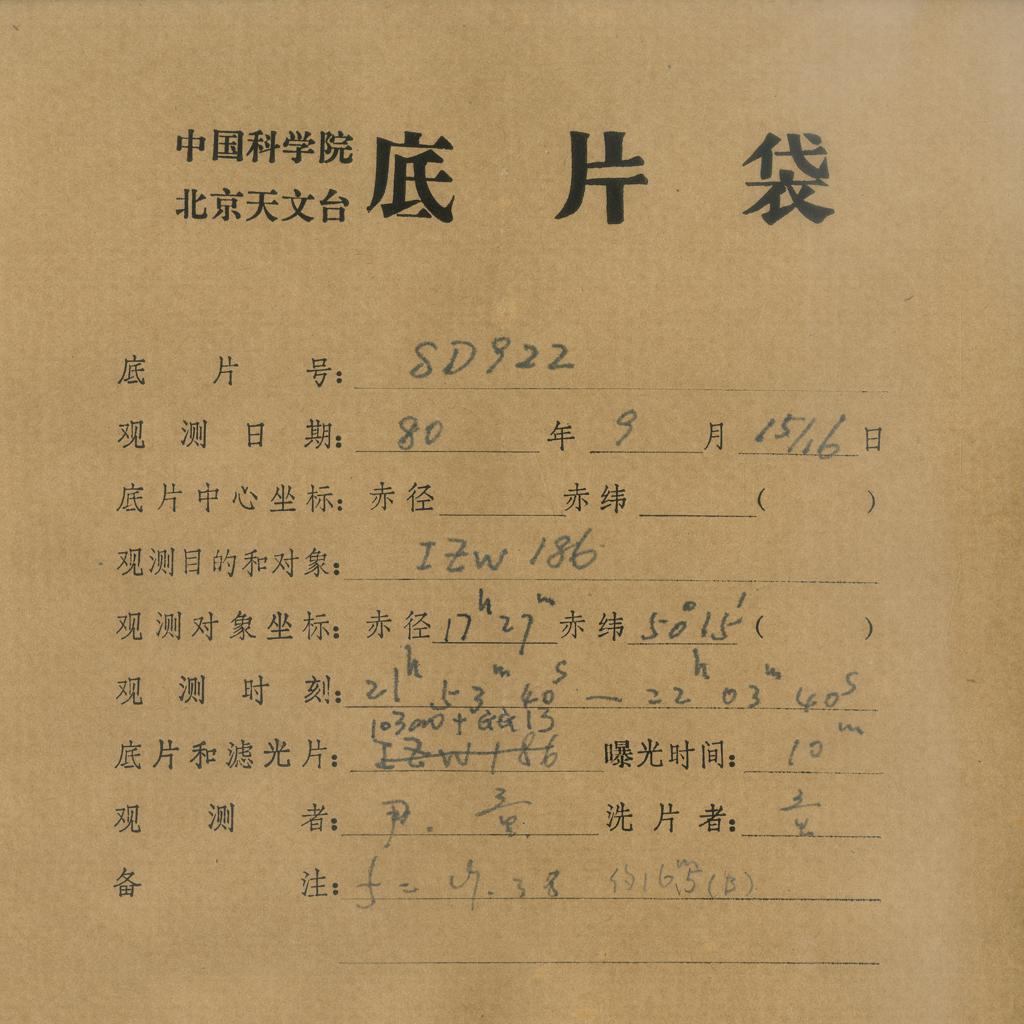 中国科学院
北京天文台
底片袋
底片号: SD922
观测日期: 80年9月15/16日
底片中心坐标: 赤径 赤纬 ( )
观测目的和对象: IZW 186
观测对象坐标: 赤径 17h27m 赤纬 50°15′ ( )
观测时刻: 21h 53m 40s — 22h 03m 40s
底片和滤光片: IZW186 曝光时间: 10m
观测者: 尹. 童 洗片者: 童
备注: f = .38 约16.5m(B)